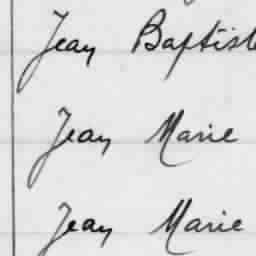 Jean Baptist
Jean Marie
Jean Marie